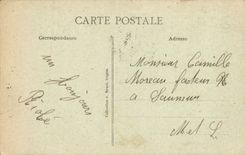 CARTE POSTALE
Correspondance
Adresse
un bonjour
Monsieur Camille
Moreau facteur
à Saumur
M et L